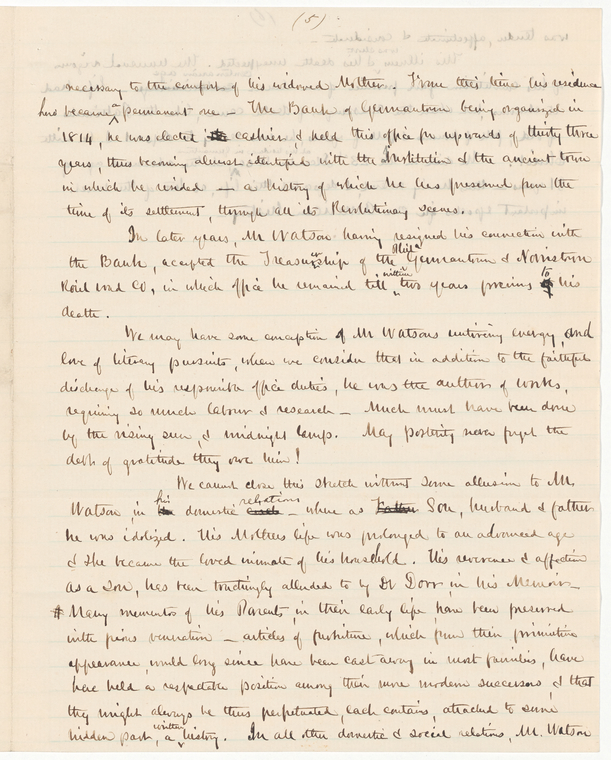 (5).
necessary to the comfort of his widowed Mother. From this time, his residence
here became a permanent one – The Bank of Germantown being organized in
1814, he was elected its cashier, & held this office for upwards of thirty three
years, thus becoming almost identified with the Institution & the ancient town
in which he resided – a history of which he has preserved from the
time of its settlement, through all its Revolutionary scenes.
In later years, Mr Watson having resigned his connection with
the Bank, accepted the Treasurership of the Phila Germantown & Norristown
Rail road Co, in which office he remained till within two years previous to his
death.
We may have some conception of Mr Watsons untiring energy, and
love of literary pursuits, when we consider that in addition to the faithful
discharge of his responsible office duties, he was the author of works,
requiring so much labour & research – Much must have been done
by the rising sun, & midnight lamp. May posterity never forget the
debt of gratitude they owe him!
We cannot close this sketch without some allusion to Mr.
Watson, in his domestic relations – where as Father Son, husband & father
he was idolized. His Mothers life was prolonged to an advanced age
& she became the loved inmate of his household. His reverence & affection
as a Son, has been touchingly alluded to by Dr Dorr, in his Memoir –
# Many mementos of his Parents, in their early life, have been preserved
with pious veneration – articles of furniture, which from their primitive
appearance, would long since have been cast away in most families, have
here held a respectable position among their more modern successors, & that
they might always be thus perpetuated, each contains, attached to some
hidden part, a written history. In all other domestic & social relations, Mr. Watson